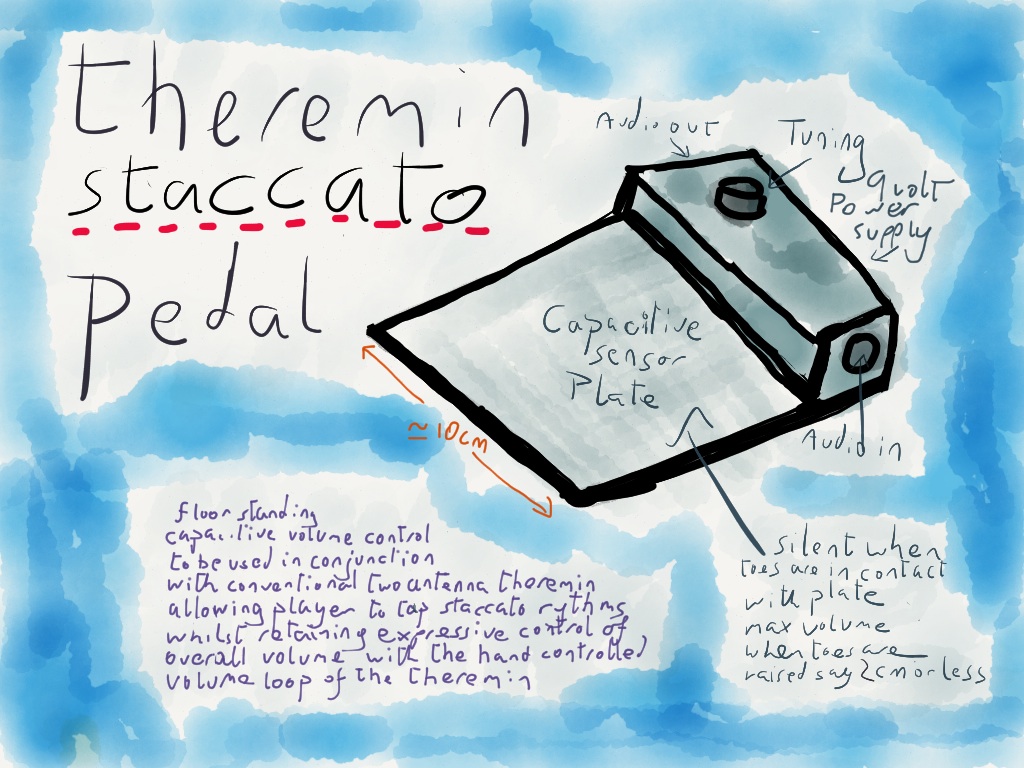 theremin
staccato
pedal
Audio out
Tuning
9 volt
Power
supply
Capacitive
sensor
Plate
≈ 10cm
Audio in
floor standing
capacitive volume control
to be used in conjunction
with conventional two antenna theremin
allowing player to tap staccato rythms
whilst retaining expressive control of
overall volume with the hand controlled
volume loop of the theremin
silent when
toes are in contact
with plate
max volume
when toes are
raised say 2cm or less